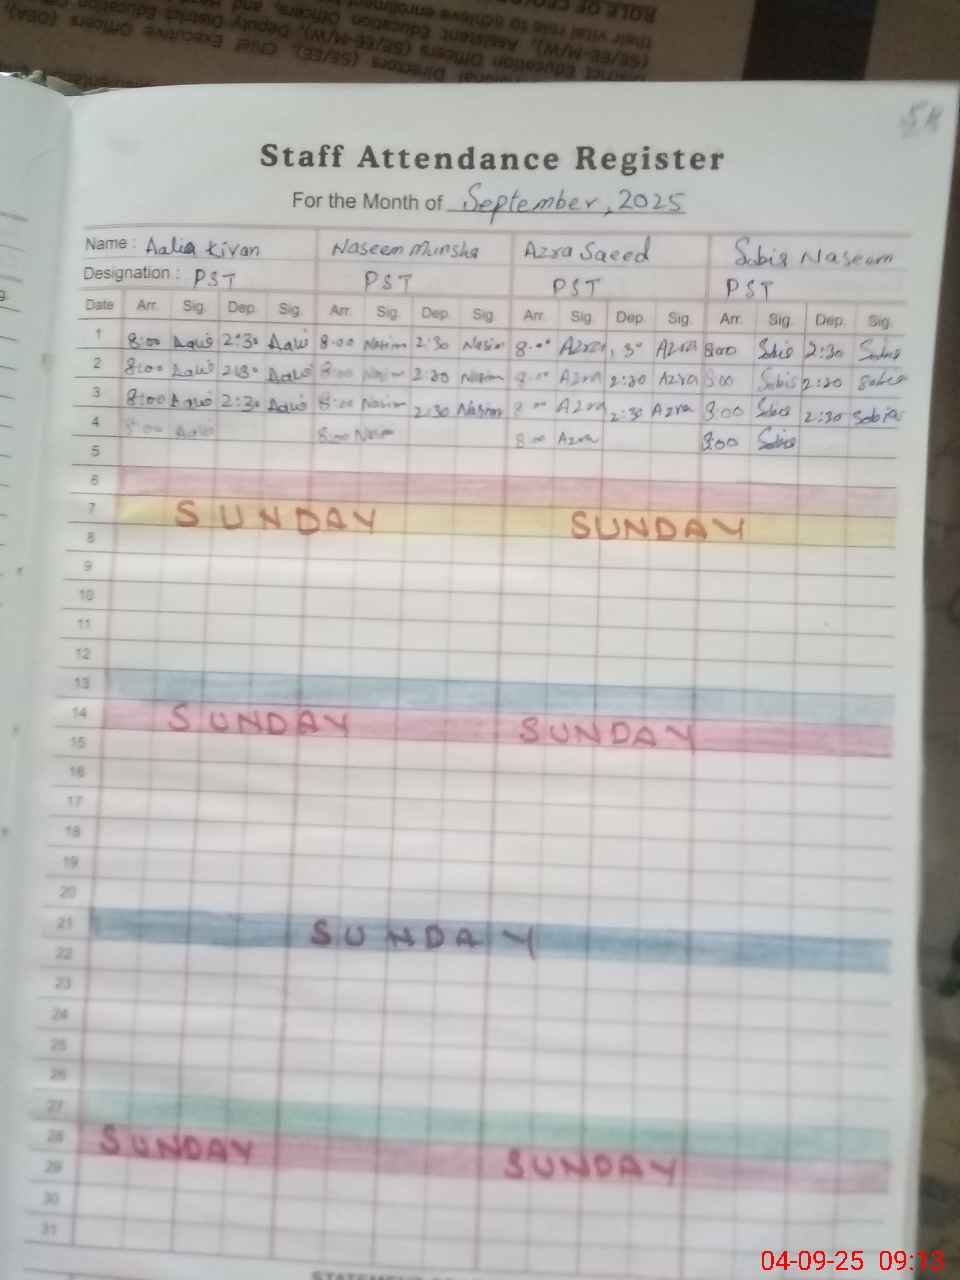 54
Staff Attendance Register
For the Month of September, 2025
Name : Aalia Kiran Naseem Munsha Azra Saeed Sobia Naseem
Designation : PST PST PST PST
Date Arr. Sig. Dep. Sig. Arr. Sig. Dep. Sig. Arr. Sig. Dep. Sig. Arr. Sig. Dep. Sig.
1 8:00 2:30 8:00 Nasim 2:30 Nasim 8:00 Azra 1:30 Azra 8:00 Sobia 2:30 Sobia
2 8:00 2:30 8:00 Nasim 2:30 Nasim 8:00 Azra 2:30 Azra 8:00 Sobia 2:30 Sobia
3 8:00 2:30 8:00 Nasim 2:30 Nasim 8:00 Azra 2:30 Azra 8:00 Sobia 2:30 Sobia
4 8:00 8:00 Nasim 8:00 Azra 8:00 Sobia
5
6
7 SUNDAY SUNDAY
8
9
10
11
12
13
14 SUNDAY SUNDAY
15
16
17
18
19
20
21 SUNDAY
22
23
24
25
26
27
28 SUNDAY SUNDAY
29
30
31
04-09-25 09:13